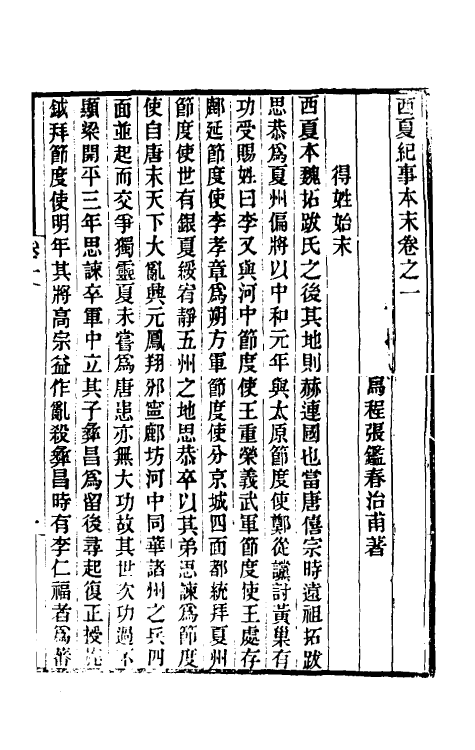 西夏紀事本末卷之一
烏程張鑑春治甫著
得姓始末
西夏本魏拓跋氏之後其地則赫連國也當唐僖宗時遠祖拓跋
思恭爲夏州偏將以中和元年與太原節度使鄭從讜討黃巢有
功受賜姓曰李又與河中節度使王重榮義武軍節度使王處存
鄜延節度使李孝章爲朔方軍節度使分京城四面都統拜夏州
節度使世有銀夏綏宥靜五州之地思恭卒以其弟思諫爲節度
使自唐末天下大亂興元鳳翔邠寧鄜坊河中同華諸州之兵四
面並起而交爭獨靈夏未嘗爲唐患亦無大功故其世次功過不
顯梁開平三年思諫卒軍中立其子彝昌爲留後尋起復正授旄
鉞拜節度使明年其將高宗益作亂殺彝昌時有李仁福者爲蕃
卷一
一